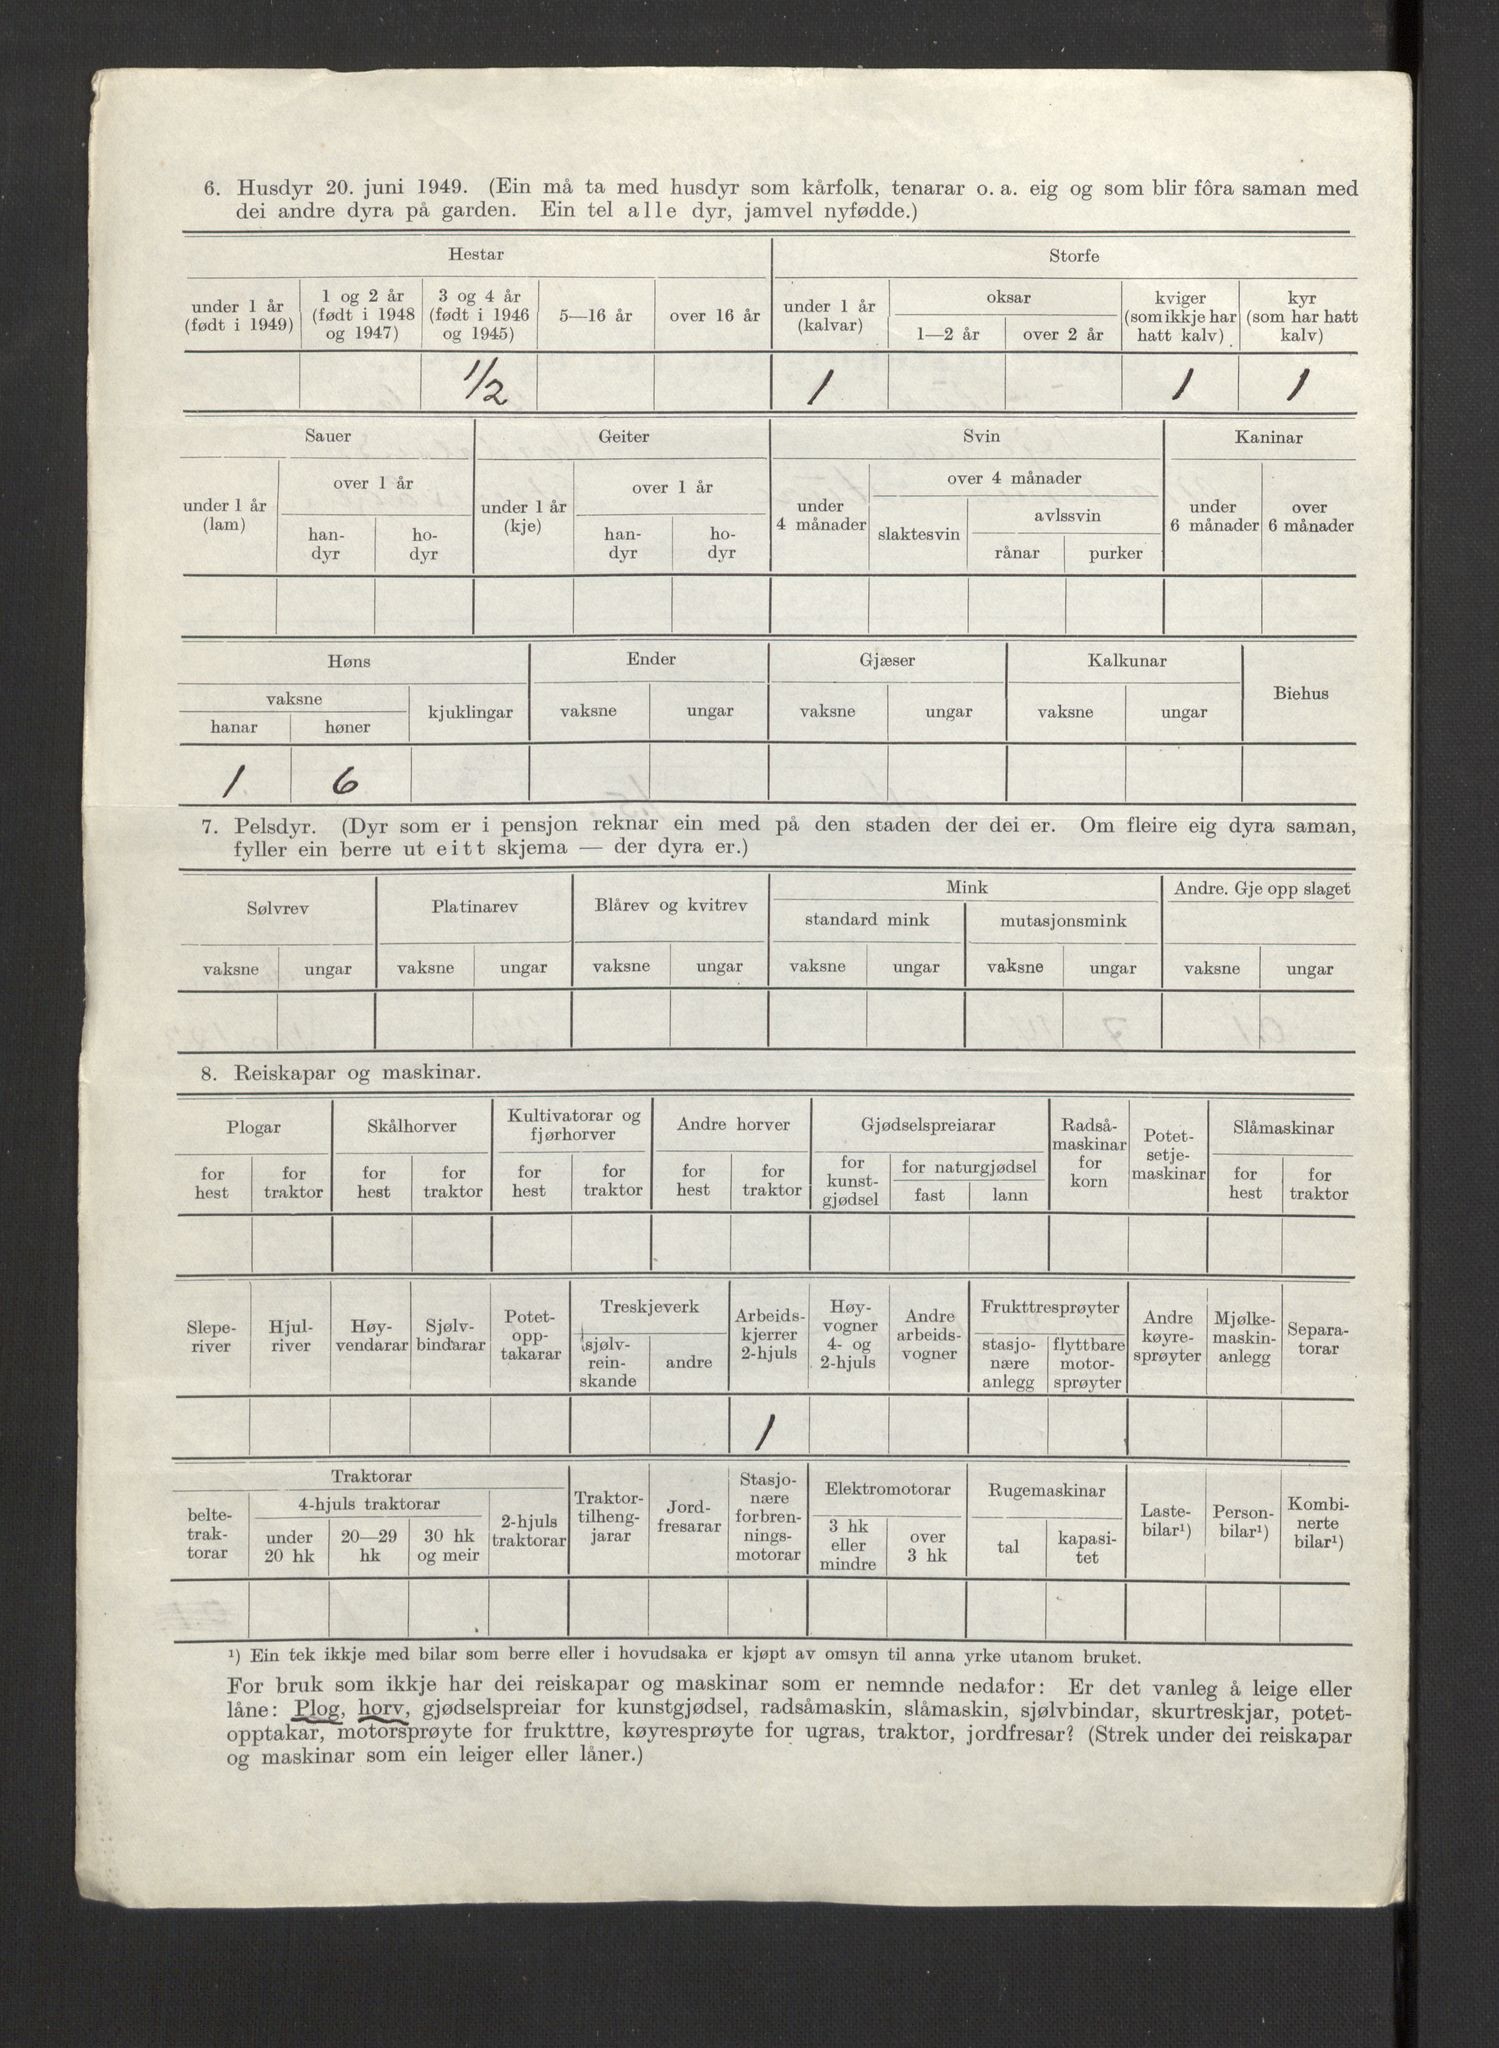 6. Husdyr 20. juni 1949. (Ein må ta med husdyr som kårfolk, tenarar o. a. eig og som blir fôra saman med
dei andre dyra på garden. Ein tel alle dyr, jamvel nyfødde.)
Hestar
Storfe
under 1 år (født i 1949)
1 og 2 år (født i 1948 og 1947)
3 og 4 år (født i 1946 og 1945)
5—16 år
over 16 år
under 1 år (kalvar)
oksar
1—2 år
over 2 år
kviger (som ikkje har hatt kalv)
kyr (som har hatt kalv)
1/2
1
1
1
Sauer
Geiter
Svin
Kaninar
under 1 år (lam)
over 1 år
han-dyr
ho-dyr
under 1 år (kje)
over 1 år
han-dyr
ho-dyr
under 4 månader
over 4 månader
slaktesvin
avlssvin
rånar
purker
under 6 månader
over 6 månader
Høns
Ender
Gjæser
Kalkunar
Biehus
vaksne
hanar
høner
kjuklingar
vaksne
ungar
vaksne
ungar
vaksne
ungar
1
6
7. Pelsdyr. (Dyr som er i pensjon reknar ein med på den staden der dei er. Om fleire eig dyra saman,
fyller ein berre ut eitt skjema — der dyra er.)
Sølvrev
Platinarev
Blårev og kvitrev
Mink
Andre. Gje opp slaget
standard mink
mutasjonsmink
vaksne
ungar
vaksne
ungar
vaksne
ungar
vaksne
ungar
vaksne
ungar
vaksne
ungar
8. Reiskapar og maskinar.
Plogar
Skålhorver
Kultivatorar og fjørhorver
Andre horver
Gjødselspreiarar
Radså-maskinar for korn
Potet-setje-maskinar
Slåmaskinar
for hest
for traktor
for hest
for traktor
for hest
for traktor
for hest
for traktor
for kunst-gjødsel
for naturgjødsel
fast
lann
for hest
for traktor
Slepe-river
Hjul-river
Høy-vendarar
Sjølv-bindarar
Potet-opp-takarar
Treskjeverk
sjølv-rein-skande
andre
Arbeids-kjerrer 2-hjuls
Høy-vogner 4- og 2-hjuls
Andre arbeids-vogner
Frukttresprøyter
stasjo-nære anlegg
flyttbare motor-sprøyter
Andre køyre-sprøyter
Mjølke-maskin-anlegg
Separa-torar
1
Traktorar
belte-trak-torar
4-hjuls traktorar
under 20 hk
20—29 hk
30 hk og meir
2-hjuls traktorar
Traktor-tilheng-jarar
Jord-fresarar
Stasjo-nære forbren-nings-motorar
Elektromotorar
3 hk eller mindre
over 3 hk
Rugemaskinar
tal
kapasi-tet
Laste-bilar¹)
Person-bilar¹)
Kombi-nerte bilar¹)
¹) Ein tek ikkje med bilar som berre eller i hovudsaka er kjøpt av omsyn til anna yrke utanom bruket.
For bruk som ikkje har dei reiskapar og maskinar som er nemnde nedafor: Er det vanleg å leige eller
låne: Plog, horv, gjødselspreiar for kunstgjødsel, radsåmaskin, slåmaskin, sjølvbindar, skurtreskjar, potet-
opptakar, motorsprøyte for frukttre, køyresprøyte for ugras, traktor, jordfresar? (Strek under dei reiskapar
og maskinar som ein leiger eller låner.)